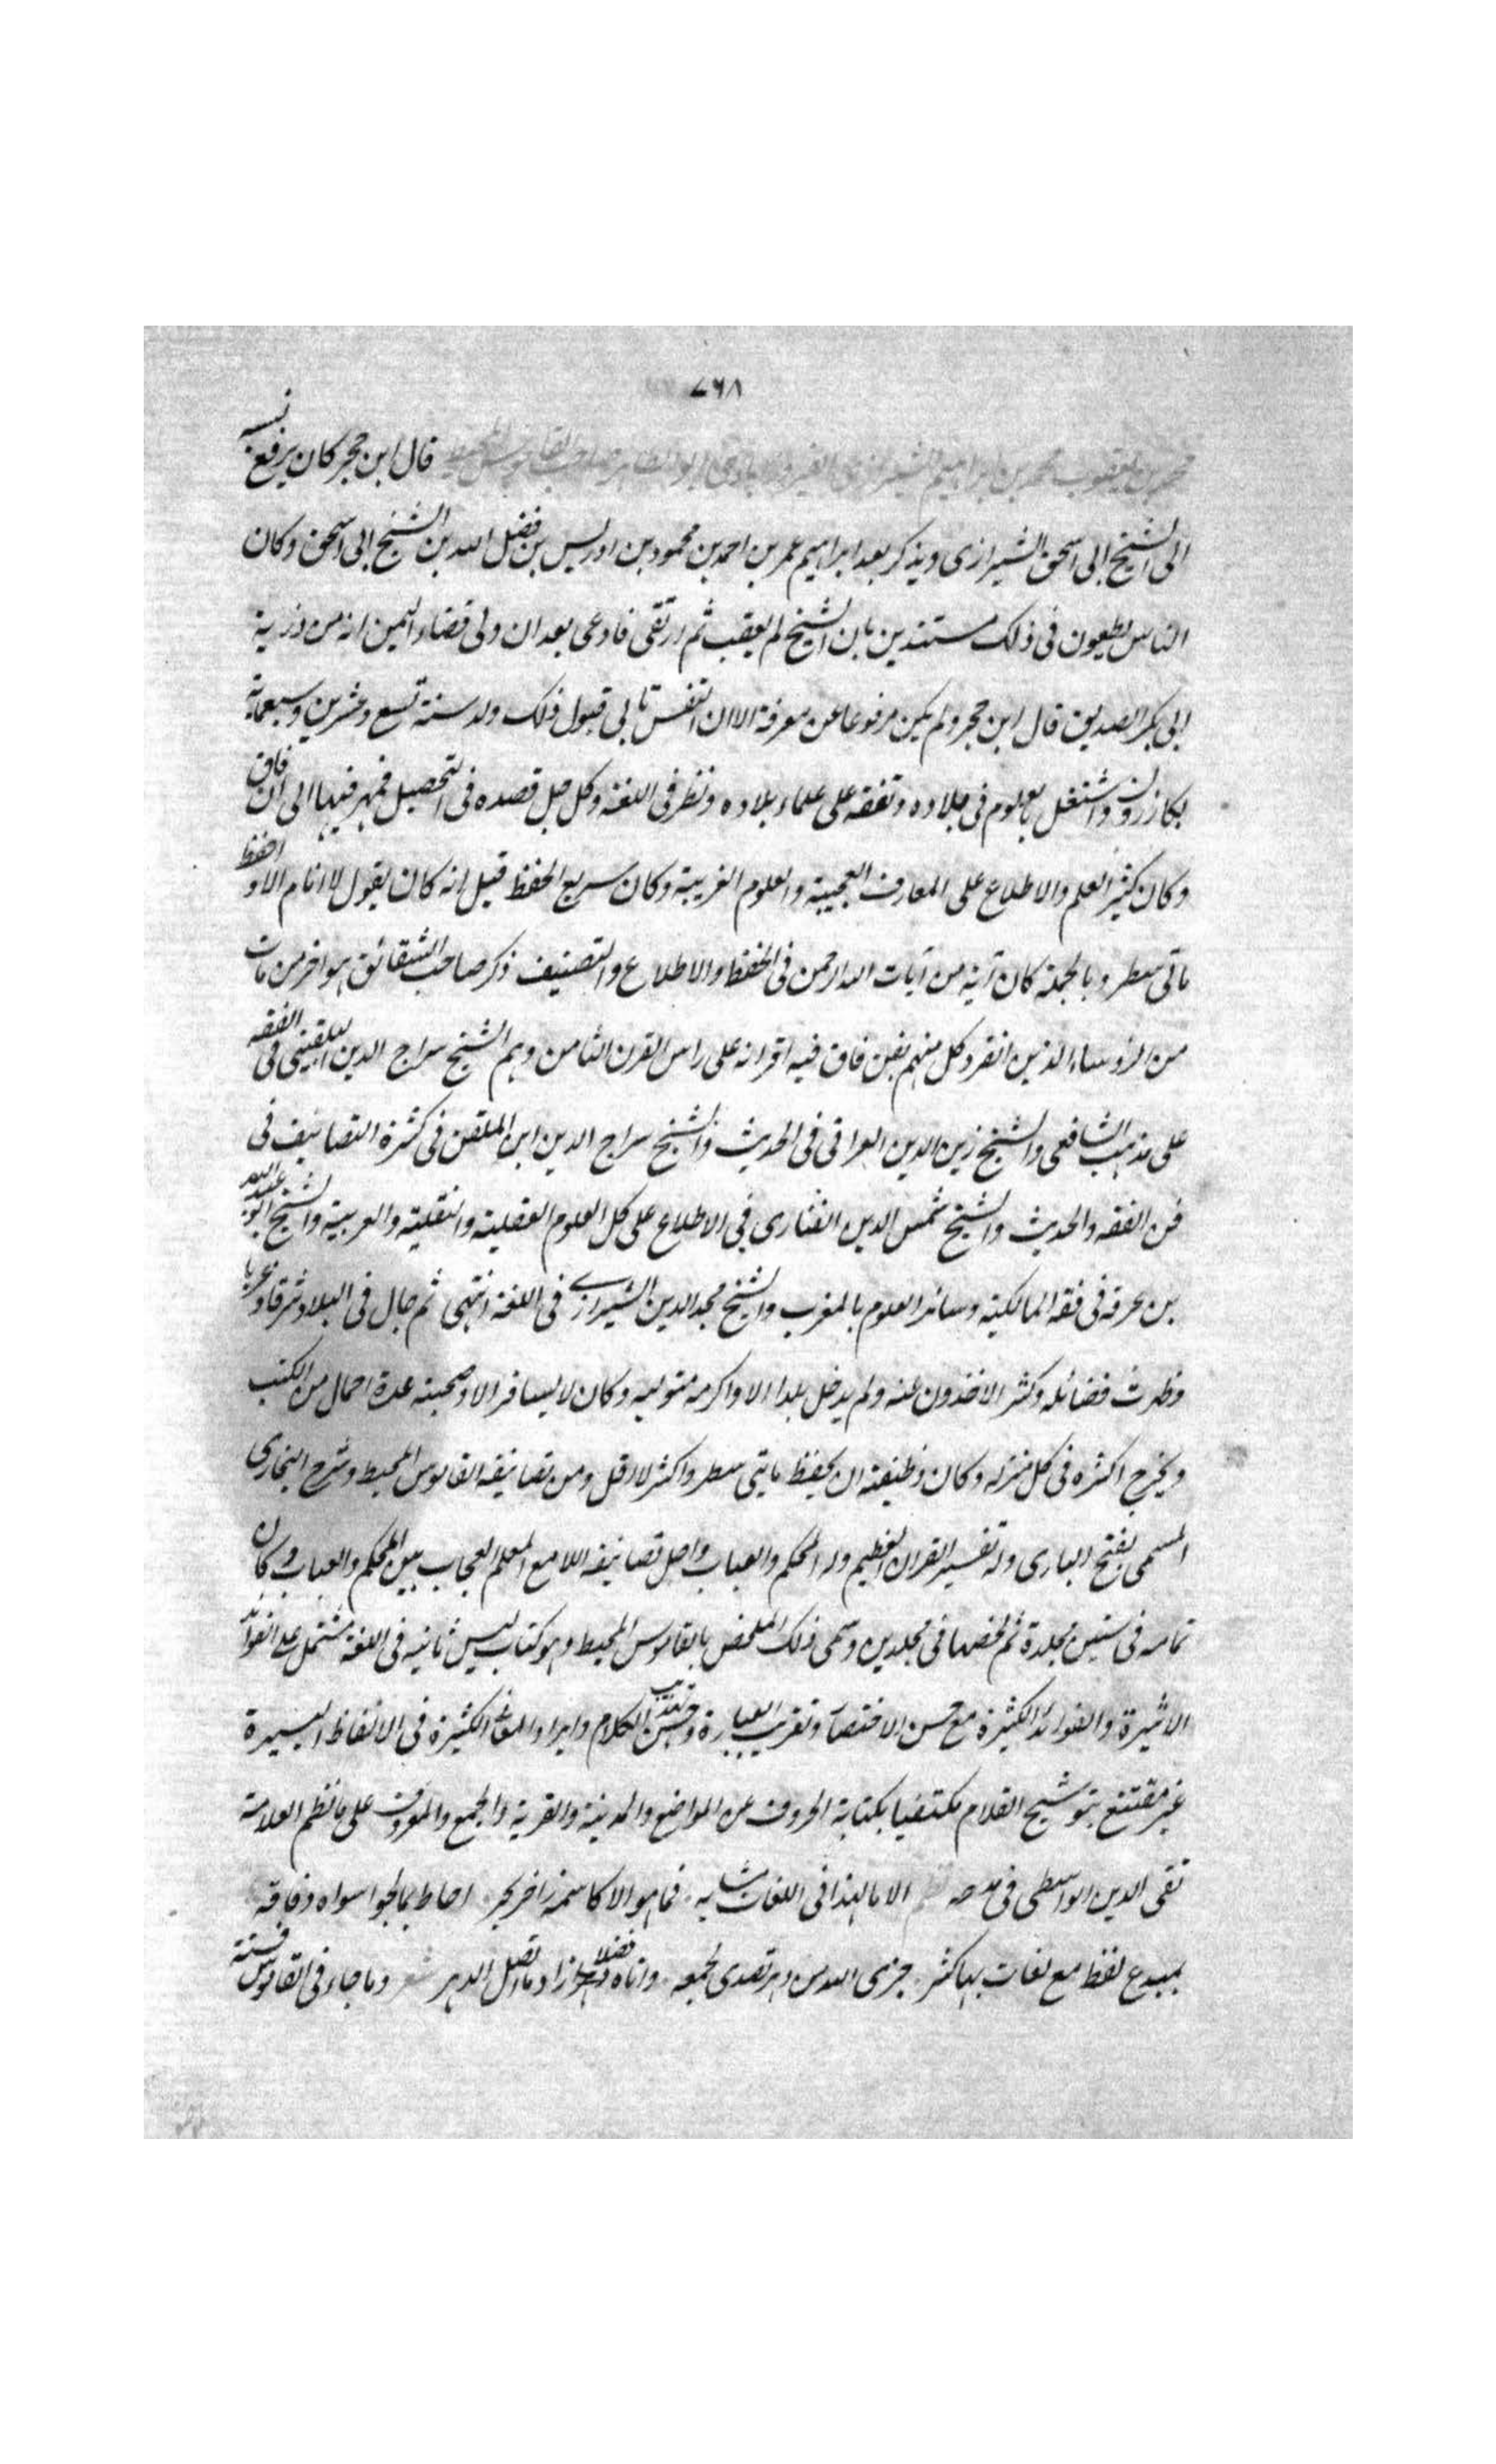 ٧٦٨
محمد بن يعقوب بن محمد بن ابراهيم الشيرازى الفيروزابادى ابو الطاهر صاحب القاموس المحيط قال ابن حجر كان يرفع نسبه
الى الشيخ ابى اسحق الشيرازى ويذكر بعد ابراهيم عمر بن احمد بن محمود بن ادريس بن فضل الله بن الشيخ ابى اسحق وكان
الناس يطعون فى ذلك مستندين بان الشيخ لم يعقب ثم ارتقى فادعى بعد ان ولى قضاء اليمن انه من ذرية
ابى بكر الصديق قال ابن حجر ولم يكن مرفوعا عن معرفة الا ان النفس تابى قبول ذلك ولد سنة تسع وعشرين وسبعماية
بكازرون واشتغل بالعلوم فى بلاده وتفقه على علماء بلاده ونظر فى اللغة وكل جل قصده فى التحصيل فمهر فيها الى ان فاق
وكان كثير العلم والاطلاع على المعارف العجيبة والعلوم الغريبة وكان سريع الحفظ قيل انه كان يقول لا انام الا واحفظ
ماتى سطر وبالجملة كان آية من آيات الله الرحمن فى الحفظ والاطلاع والتصنيف ذكر صاحب الشقائق هو اخر من مات
من الرؤساء الذين انفرد كل منهم بفن فاق فيه اقرانه على راس القرن الثامن وهم الشيخ سراج الدين البلقينى فى الفقه
على مذهب الشافعى والشيخ زين الدين العراقى فى الحديث والشيخ سراج الدين ابن الملقن فى كثرة التصانيف فى
فن الفقه والحديث والشيخ شمس الدين الفنارى فى الاطلاع على كل العلوم العقلية والنقلية والعربية والشيخ ابو عبد الله
بن عرفة فى فقه المالكية وسائر العلوم بالمغرب والشيخ مجد الدين الشيرازى فى اللغة انتهى ثم جال فى البلاد شرقا وغربا
وظهرت فضائله وكثر الاخذون عنه ولم يدخل بلدا الا واكرمه متوليه وكان لا يسافر الا وصحبته عدة احمال من الكتب
ويخرج اكثره فى كل منزلة وكان وظيفته ان يحفظ مايتى سطر واكثر لا اقل ومن تصانيفه القاموس المحيط وشرح البخارى
المسمى بفتح البارى وله تفسير القران العظيم وله المحكم والعباب واجل تصانيفه اللامع المعلم العجاب بين المحكم والعباب وكان
تمامه فى ستين مجلدة ثم لخصها فى مجلدين وسمى ذلك الملخص بالقاموس المحيط وهو كتاب ليس ثانيه فى اللغة مشتمل على الفوائد
الاثيرة والفوائد الكثيرة مع حسن الاختصار وتقريب العبارة وتهذيب الكلام وايراد المعانى الكثيرة فى الالفاظ اليسيرة
غير مقتنع بتوشيح القلام مكتفيا بكتابة الحروف عن المواضع والمدينة والقرية والجمع والمعروف على ما نظم العلامة
تقى الدين الواسطى فى مدحه الا ما لهذا فى اللغات مشابه فما هو الا كاسمه زاخر بحر احاط بما يحوا سواه وفاقه
بمبدع لفظ مع لغات بها كثر جزى الله من تصدى لجمعه واتاه فضلا زاد ما اتصل الدهر وما جاء فى القاموس